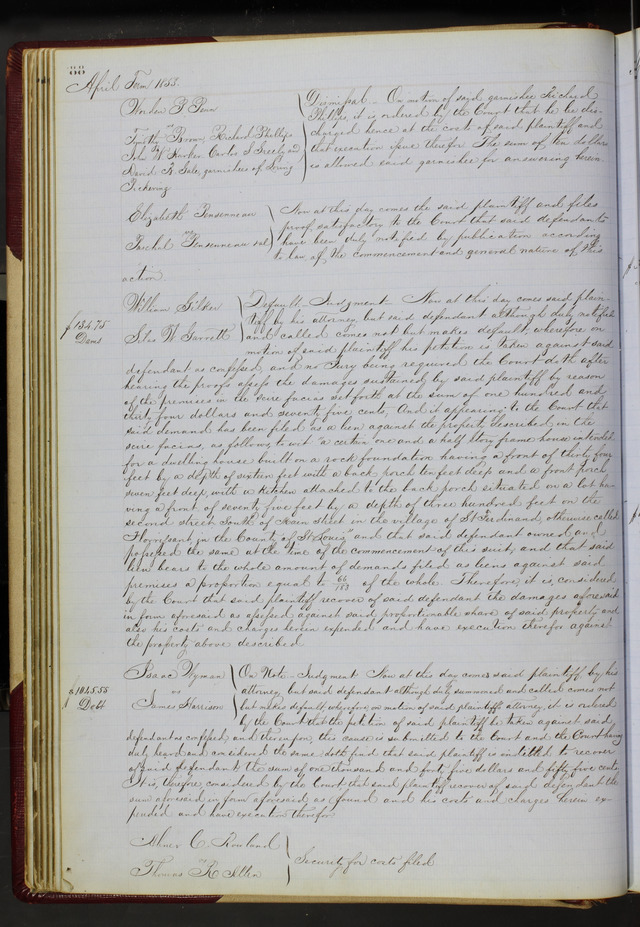 88
April Term 1853.
Worden P Penn
vs
Timothy Brown, Richard Phillips
John W Kerker Carlos S Greely and
David N. Gale, garnishees of Loring
Pickering
Dismissal. On motion of said garnishee Richard
Phillips, it is ordered by the Court that he be dis-
charged hence at the costs of said plaintiff and
that execution issue therefor. The sum of ten dollars
is allowed said garnishee for answering herein.
Elizabeth Pensenneau
vs
Paschal Pensenneau et al
Now at this day comes the said plaintiff and files
proof satisfactory to the Court that said defendants
have been duly notified by publication according
to law of the commencement and general nature of this
action.
$134.75
Dams
William Gilker
vs
John W Garrett
Default. Judgment. Now at this day comes said plain-
tiff by his attorney, but said defendant although duly notified
and called comes not but makes default; wherefore on
motion of said plaintiff his petition is taken against said
defendant as confessed, and no Jury being required the Court doth after
hearing the proofs assess the damages sustained by said plaintiff by reason
of the premises in the scire facias set forth at the sum of one hundred and
thirty four dollars and seventy five cents. And it appearing to the Court that
said demand has been filed as a lien against the property described in the
scire facias, as follows, to wit "a certain one and a half story frame house intended
for a dwelling house built on a rock foundation having a front of thirty four
feet by a depth of sixteen feet with a back porch ten feet deep and a front porch
seven feet deep, with a kitchen attached to the back porch situated on a lot ha-
ving a front of seventy five feet by a depth of three hundred feet on the
second street South of Seven Street in the village of St Ferdinand, otherwise called
Florrissant in the County of St Louis," and that said defendant owned and
possessed the same at the time of the commencement of this suit, and that said
lien bears to the whole amount of demands filed as liens against said
premises a proportion equal to 66/183 of the whole. Therefore, it is considered
by the Court that said plaintiff recover of said defendant the damages aforesaid
in form aforesaid as assessed against said proportionable share of said property and
also his costs and charges herein expended and have execution therefor against
the property above described
$1045.55
Debt
Isaac Wyman
vs
James Harrison
On Note. Judgment. Now at this day comes said plaintiff by his
attorney, but said defendant although duly summoned and called comes not
but makes default, wherefore, on motion of said plaintiffs attorney, it is ordered
by the Court that the petition of said plaintiff be taken against said
defendant as confessed, and thereupon this cause is submitted to the Court and the Court having
duly heard and considered the same doth find that said plaintiff is intitled to recover
of said defendant the sum of one thousand and forty five dollars and fifty five cents
It is, therefore considered by the Court that said plaintiff recover of said defendant the
sum aforesaid in form aforesaid as found and his costs and charges herein ex-
pended and have execution therefor
Abner C. Rowland
vs
Thomas R Allen
Security for costs filed